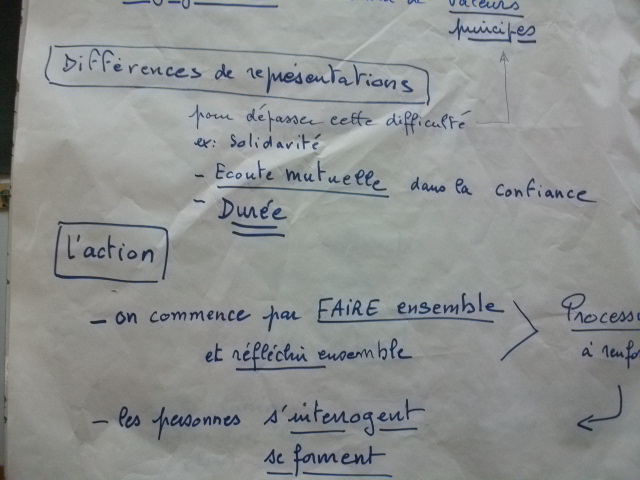 de valeurs
principes
Différences de représentations
pour dépasser cette difficulté
ex: Solidarité
- Ecoute mutuelle dans la confiance
- Durée
L'action
- on commence par FAIRE ensemble
et réfléchir ensemble
Process
à renfo
- les personnes s'interrogent
se forment